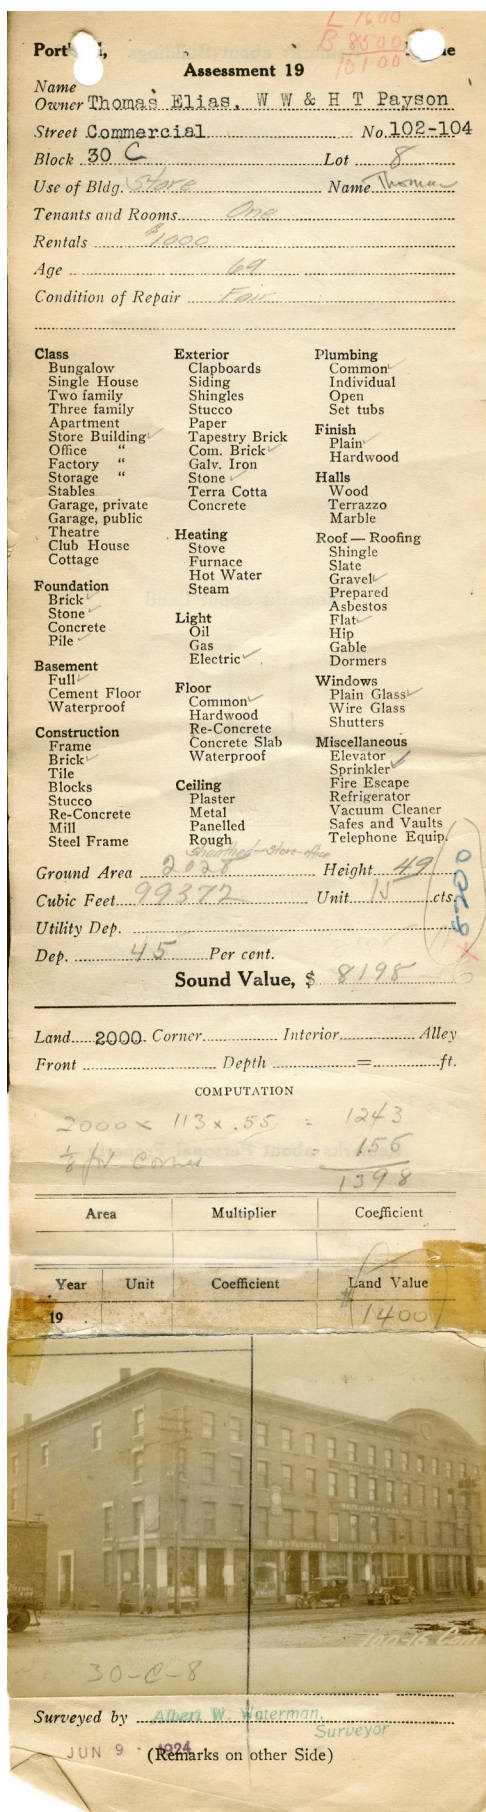 L 1600
B 8500
10100
Portl d, ne
Assessment 19
Name
Owner Thomas Elias. W W & H T Payson
Street Commercial No. 102-104
Block 30 C Lot 8
Use of Bldg. Store Name Thomas
Tenants and Rooms One
Rentals $1000
Age 69
Condition of Repair Fair
Class
Bungalow
Single House
Two family
Three family
Apartment
Store Building ✓
Office "
Factory "
Storage "
Stables
Garage, private
Garage, public
Theatre
Club House
Cottage
Foundation
Brick ✓
Stone ✓
Concrete
Pile ✓
Basement
Full ✓
Cement Floor
Waterproof
Construction
Frame
Brick ✓
Tile
Blocks
Stucco
Re-Concrete
Mill
Steel Frame
Exterior
Clapboards
Siding
Shingles
Stucco
Paper
Tapestry Brick
Com. Brick ✓
Galv. Iron
Stone ✓
Terra Cotta
Concrete
Heating
Stove
Furnace
Hot Water
Steam
Light
Oil
Gas
Electric ✓
Floor
Common ✓
Hardwood
Re-Concrete
Concrete Slab
Waterproof
Ceiling
Plaster
Metal
Panelled
Rough
Sheathed-Store-office
Plumbing
Common ✓
Individual
Open
Set tubs
Finish
Plain ✓
Hardwood
Halls
Wood
Terrazzo
Marble
Roof — Roofing
Shingle
Slate
Gravel ✓
Prepared
Asbestos
Flat ✓
Hip
Gable
Dormers
Windows
Plain Glass ✓
Wire Glass
Shutters
Miscellaneous
Elevator
Sprinkler ✓
Fire Escape
Refrigerator
Vacuum Cleaner
Safes and Vaults
Telephone Equip.
Ground Area 2028 Height 49
Cubic Feet 99372 Unit 15 cts.
Utility Dep.
Dep. 45 Per cent.
Sound Value, $ 8198
Land 2000 Corner Interior Alley
Front Depth = ft.
COMPUTATION
2000 x 113 x .55 = 1243
1/8 for corner = 156
1398
Area Multiplier Coefficient
Year Unit Coefficient Land Value
19 $1400
OILS AND VARNISHES
100-16 Com
30-C-8
Surveyed by Albert W. Waterman,
Surveyor
JUN 9 - 1924
(Remarks on other Side)